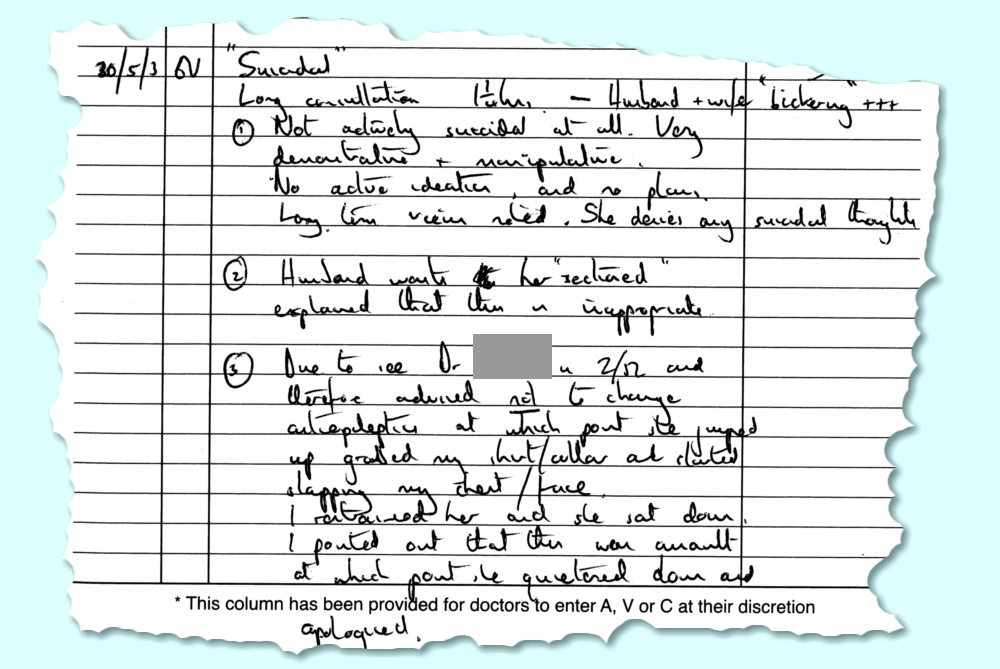 30/5/3 GV "Suicidal"
Long consultation 1½hrs. — Husband + wife "bickering" +++
① Not actively suicidal at all. Very
demonstrative + manipulative.
No active ideation, and no plans.
Long term views noted. She denies any suicidal thoughts
② Husband wants her "sectioned"
explained that this is inappropriate
③ Due to see Dr in 2/52 and
therefore advised not to change
antiepileptics at which point she jumped
up grabbed my shirt/collar and started
slapping my chest/face.
I restrained her and she sat down.
I pointed out that this was assault
at which point she quietened down and
* This column has been provided for doctors to enter A, V or C at their discretion
apologised.